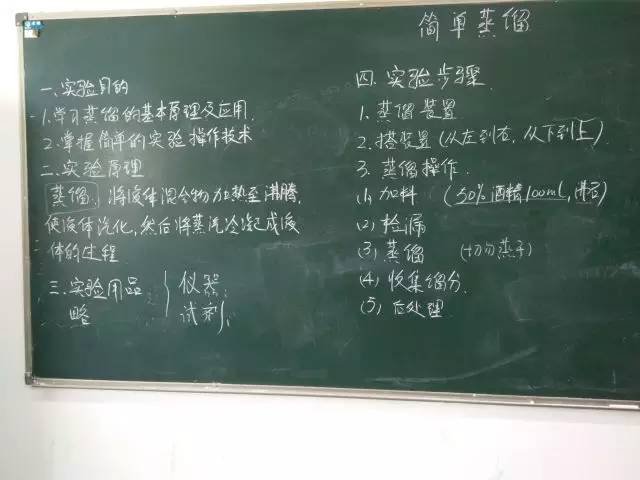 简单蒸馏
一.实验目的
1.学习蒸馏的基本原理及应用.
2.掌握简单的实验操作技术
二.实验原理
蒸馏:将液体混合物加热至沸腾,
使液体汽化,然后将蒸汽冷凝成液
体的过程
三.实验用品
略
仪器:
试剂:
四.实验步骤
1.蒸馏装置
2.搭装置(从左到右,从下到上)
3.蒸馏操作.
(1)加料 (50%酒精100ml,沸石)
(2)检漏
(3)蒸馏 (切勿蒸干)
(4)收集馏分.
(5)后处理.